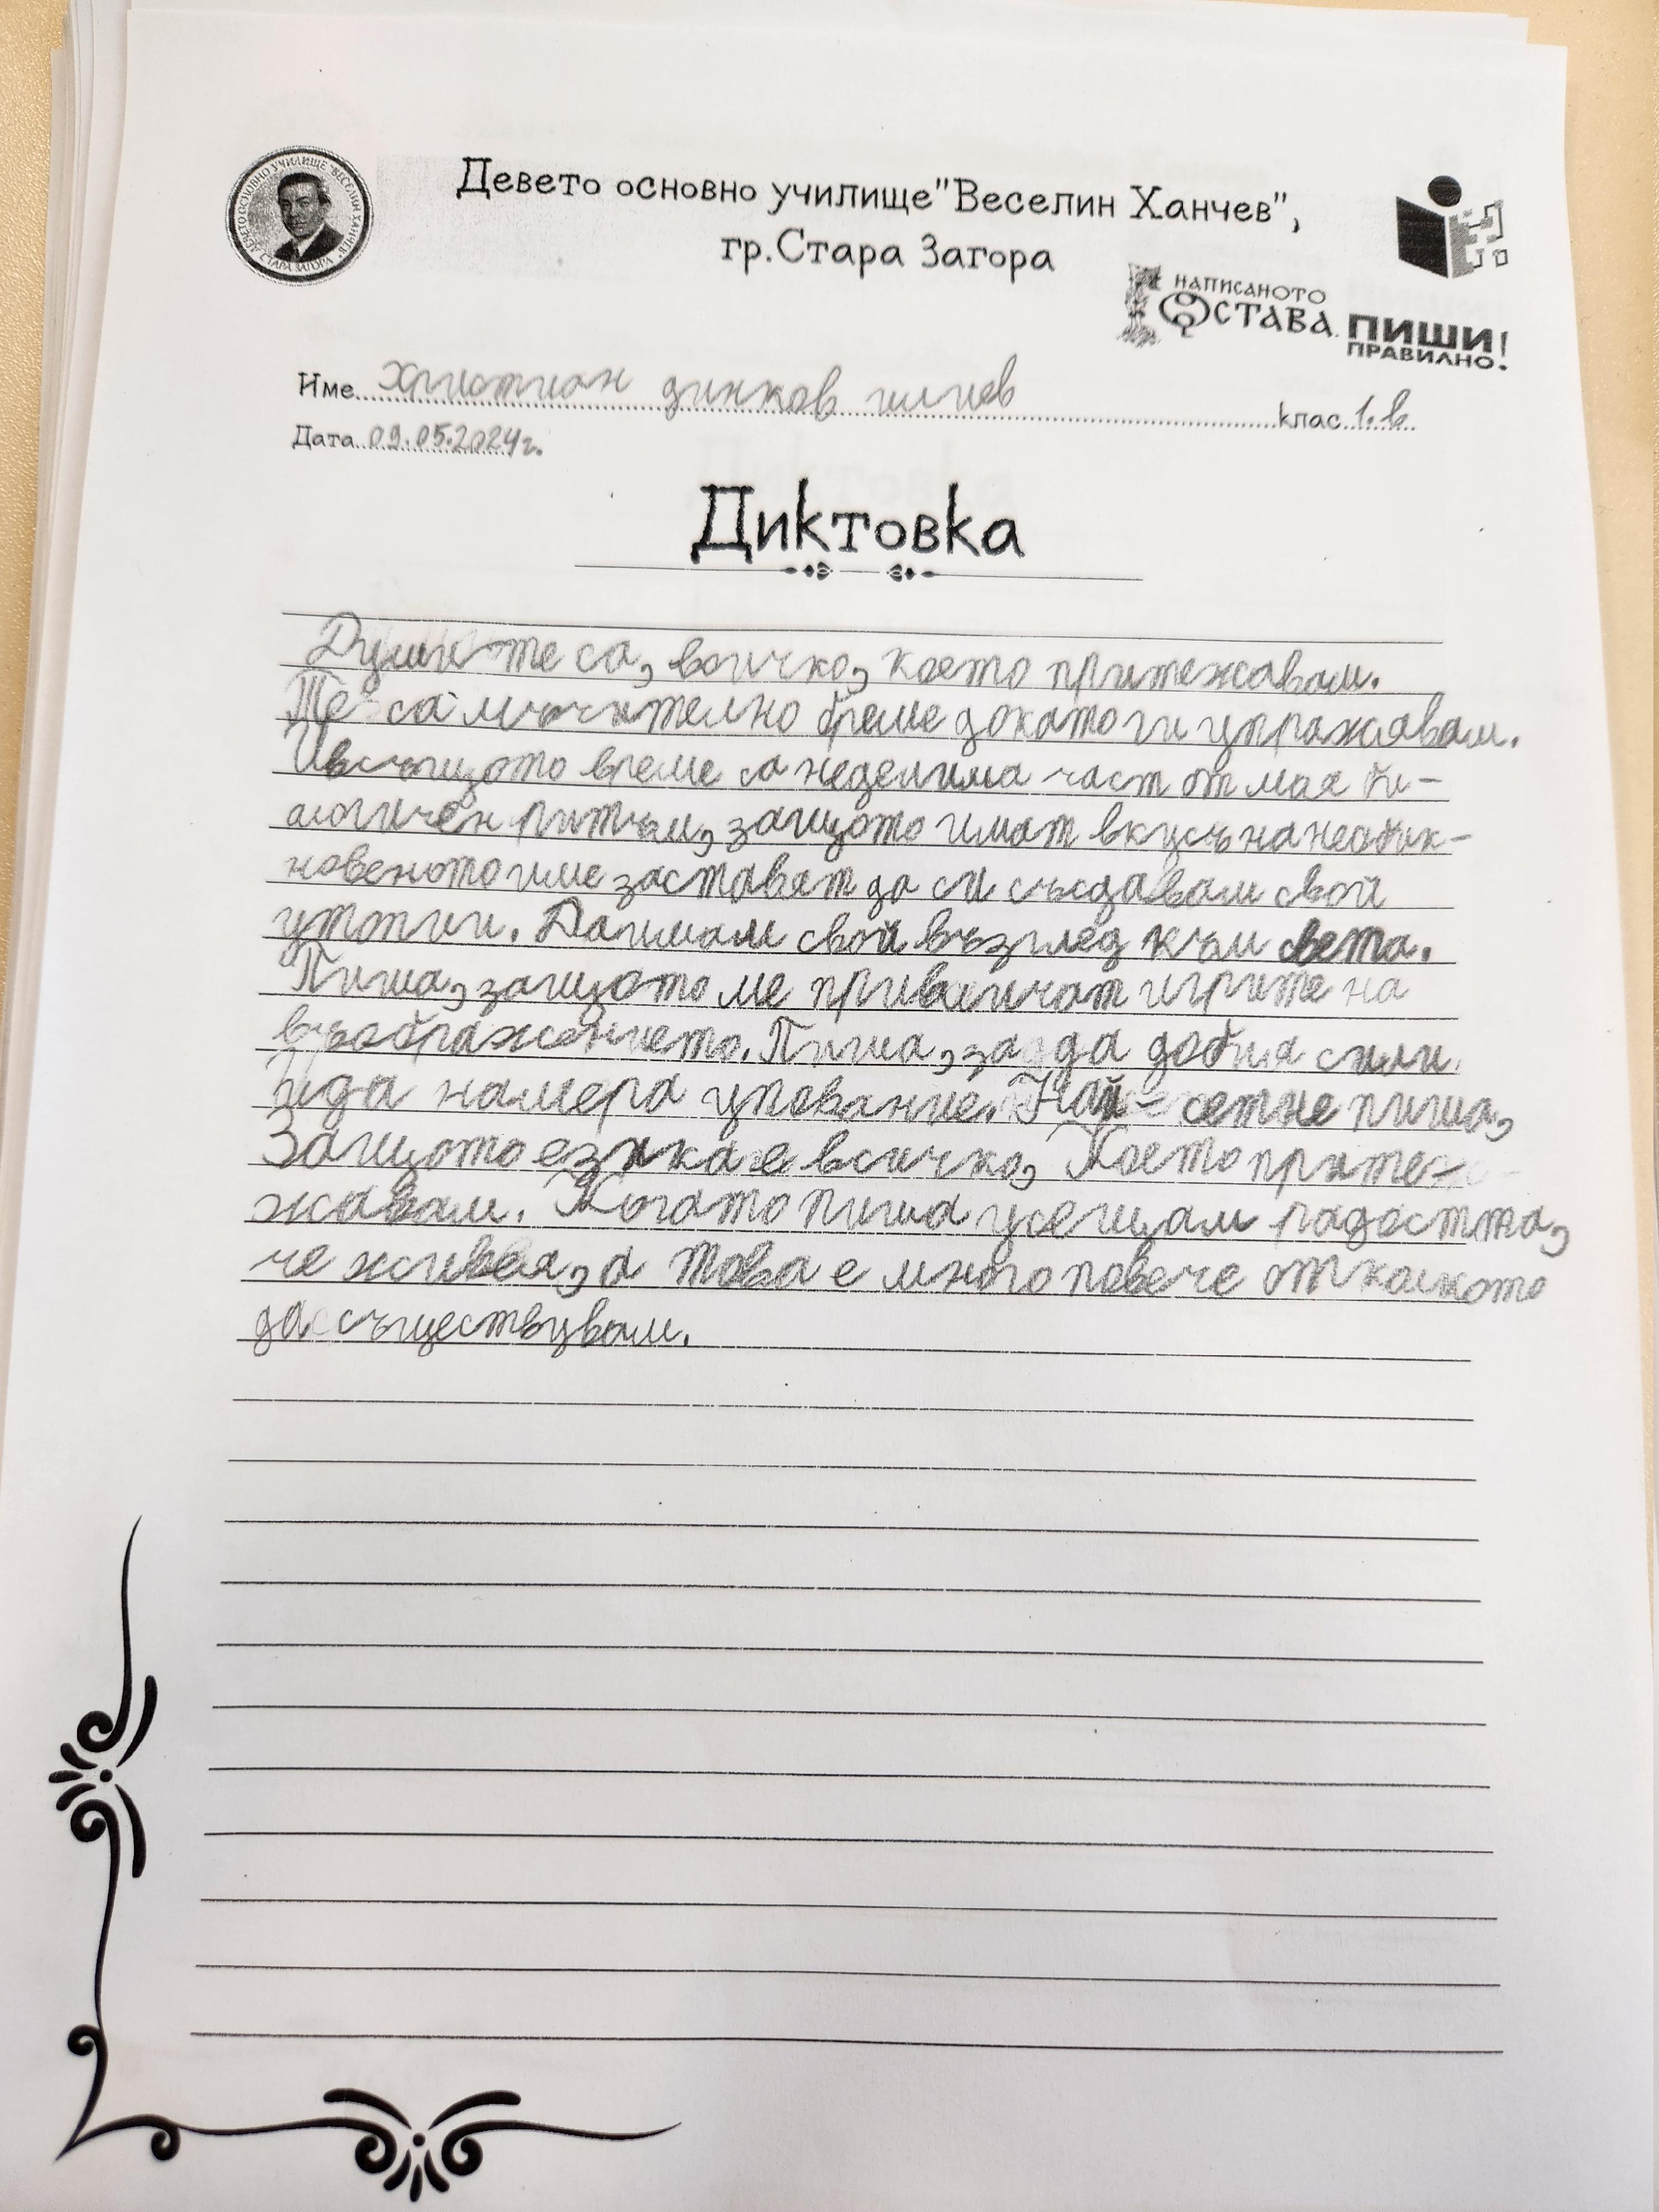 ДЕВЕТО ОСНОВНО УЧИЛИЩЕ "ВЕСЕЛИН ХАНЧЕВ" СТАРА ЗАГОРА
Девето основно училище "Веселин Ханчев",
гр.Стара Загора
НАПИСАНОТО
ОСТАВА.
ПИШИ
ПРАВИЛНО!
Име Християн динков илиев клас 1.в
Дата 09.05.2024г.
Диктовка
са, всичко, което притежавам.
Те са мъчително бреме докато ги упражявам.
Ивсъщото време са неделима част от мая би-
логичен ритъм, защото имат вкусъ на необик-
новенотоиме заставят да си създавам свой
утопии. Даимам свой възглед към света.
Пиша, защото ме привличат игрите на
въображението. Пиша, за да добия сили.
Ида намера упование. Най- сетне пиша,
Защото езика е всичко, Което прите-
жавам. Когато пиша усещам радостта,
че живея, а това е много повече от колкото
да съществувам.